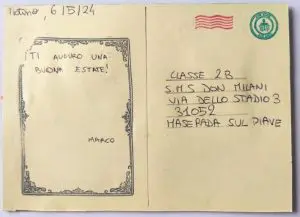 6/5/24
¡TI AUGURO UNA
BUONA ESTATE!
MARCO
CLASSE 2B
S.M.S DON MILANI
VIA DELLO STADIO 3
31052
MASERADA SUL PIAVE